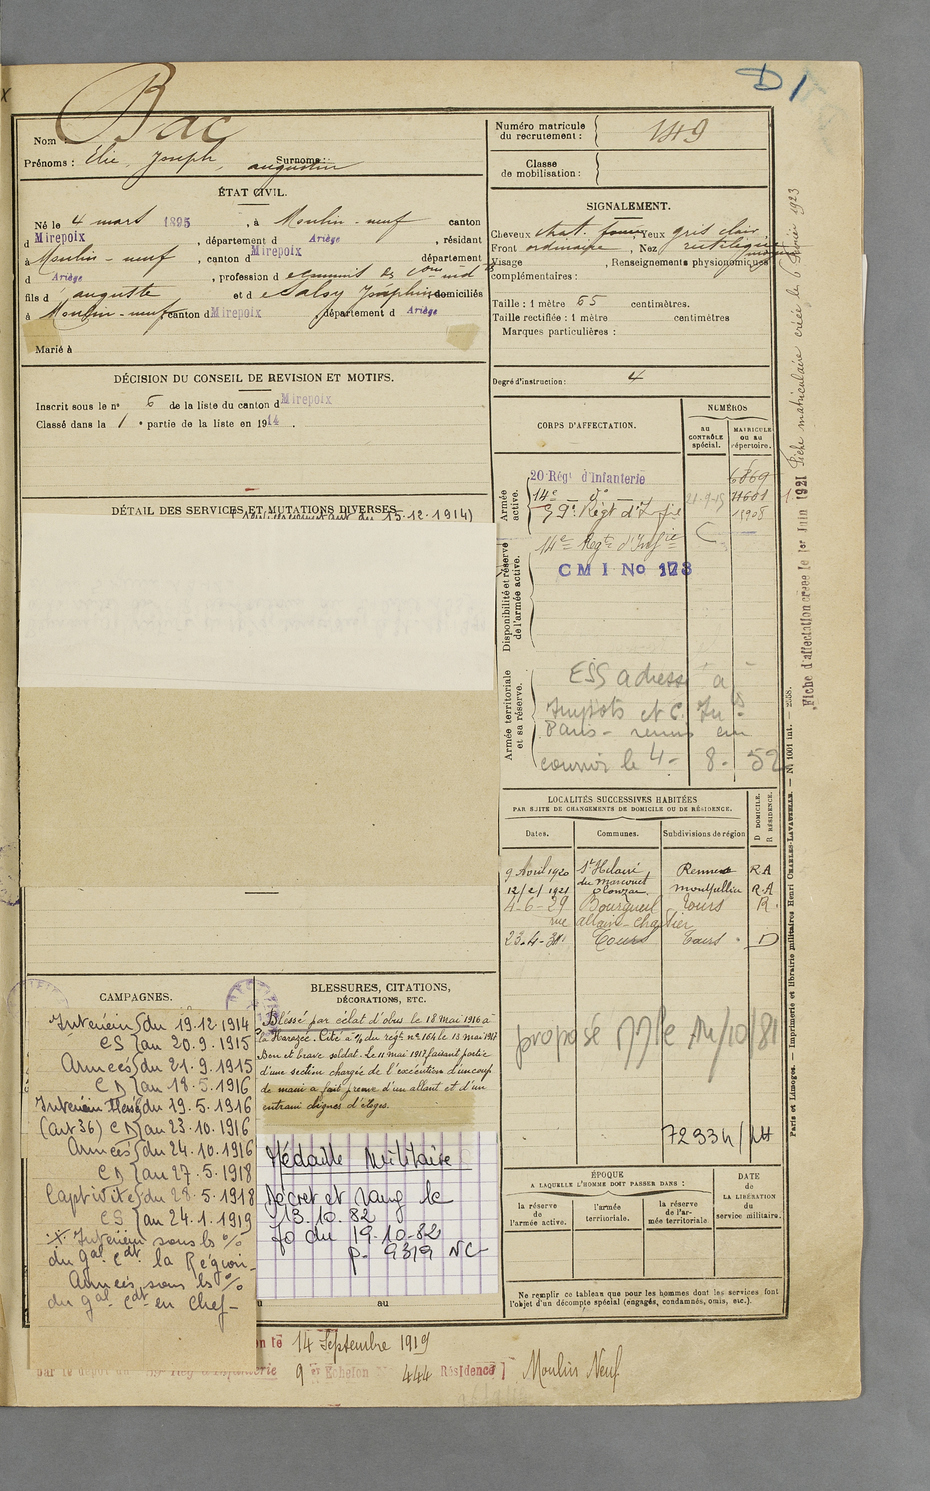 D 1
Nom Bac
Prénoms : Elie, Joseph, augustin Surnoms :
ÉTAT CIVIL.
Né le 4 mars 1895, à Moulin-neuf canton
d Mirepoix, département d Ariège, résidant
à Moulin-neuf, canton d Mirepoix département
d Ariège, profession d
fils d auguste et d e Salvy Joséphine domiciliés
à Moulin-neuf canton d Mirepoix, département d Ariège
Marié à
DÉCISION DU CONSEIL DE REVISION ET MOTIFS.
Inscrit sous le n° 6 de la liste du canton d Mirepoix
Classé dans la 1e partie de la liste en 1914.
DÉTAIL DES SERVICES ET MUTATIONS DIVERSES
du 15.12.1914)
CAMPAGNES.
Intérieur du 19.12.1914
CS au 20.9.1915
Armées du 21.9.1915
CD au 18.5.1916
Intérieur Blessé du 19.5.1916
(art 36) CD au 23.10.1916
Armées du 24.10.1916
CD au 27.5.1918
Captivité du 28.5.1918
CS au 24.1.1919
+ Intérieur sous ls %
du gal cdt la Région-
Armées sous ls %
du gal cdt en Chef-
BLESSURES, CITATIONS,
DÉCORATIONS, ETC.
Blessé par éclat d'obus le 18 mai 1916 à
la Harazée. Cité à l'o/ du régt n° 104 le 13 mai 1917
Bon et brave soldat. Le 11 mai 1917 faisant partie
d'une section chargée de l'exécution d'un coup
de main a fait preuve d'un allant et d'un
entrain dignes d'éloges.
Médaille Militaire
Décret et rang le
13.10.82
JO du 19-10-82
p. 9319 NC
au
on le 14 Septembre 1919
par le dépôt du 59e Rég d'Infanterie 9 er Echelon N° 444 Résidence ] Moulin Neuf
Numéro matricule
du recrutement : 149
Classe
de mobilisation :
SIGNALEMENT.
Cheveux chat. foncé, Yeux gris clair
Front ordinaire, Nez rectiligne
moyen
Visage, Renseignements physionomiques
complémentaires :
Taille : 1 mètre 65 centimètres.
Taille rectifiée : 1 mètre centimètres
Marques particulières :
Degré d'instruction : 4
CORPS D'AFFECTATION.
NUMÉROS
au
CONTRÔLE
spécial.
MATRICULE
ou au
répertoire.
Armée
active.
20 Régt d'Infanterie 6869
14e — do — 21-9-15 11601
59e Régt d'Infie 11908
Disponibilité et réserve
de l'armée active.
14e Regt d'Infie
C M I No 178
Armée territoriale
et sa réserve.
ESS adressé à
Impôts et C. Inds
Paris - remis au
courrier le 4 - 8 - 52
LOCALITÉS SUCCESSIVES HABITÉES
PAR SUITE DE CHANGEMENTS DE DOMICILE OU DE RÉSIDENCE.
Dates. Communes. Subdivisions de région D DOMICILE. R RÉSIDENCE.
9 Avril 1920 St Hilaire Rennes R A
12/2/1921 Olonzac montpellier R.A
4-6-29 Bourgueil Tours R.
rue allain-Chartier
23.4.31 Tours Tours D
proposé MM le 14/10/81
72334/MM
ÉPOQUE
A LAQUELLE L'HOMME DOIT PASSER DANS :
la réserve
de
l'armée active.
l'armée
territoriale.
la réserve
de l'ar-
mée territoriale
DATE
de
LA LIBÉRATION
du
service militaire.
Ne remplir ce tableau que pour les hommes dont les services font
l'objet d'un décompte spécial (engagés, condamnés, omis, etc.).
Fiche d'affectation créée le 1er Juin 1921 Fiche matriculaire créée le 6 Février 1923
Paris et Limoges. — Imprimerie et librairie militaires Henri CHARLES-LAVAUZELLE. — N° 1001 int. — 2358.